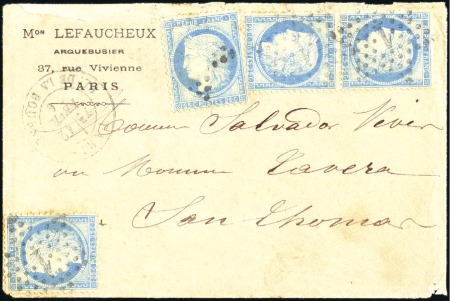 Mon LEFAUCHEUX
ARQUEBUSIER
37, rue Vivienne
PARIS
DE LA BOURSE
Monsieur Salvador Vives
ou Monsieur Tavera
San Thomas